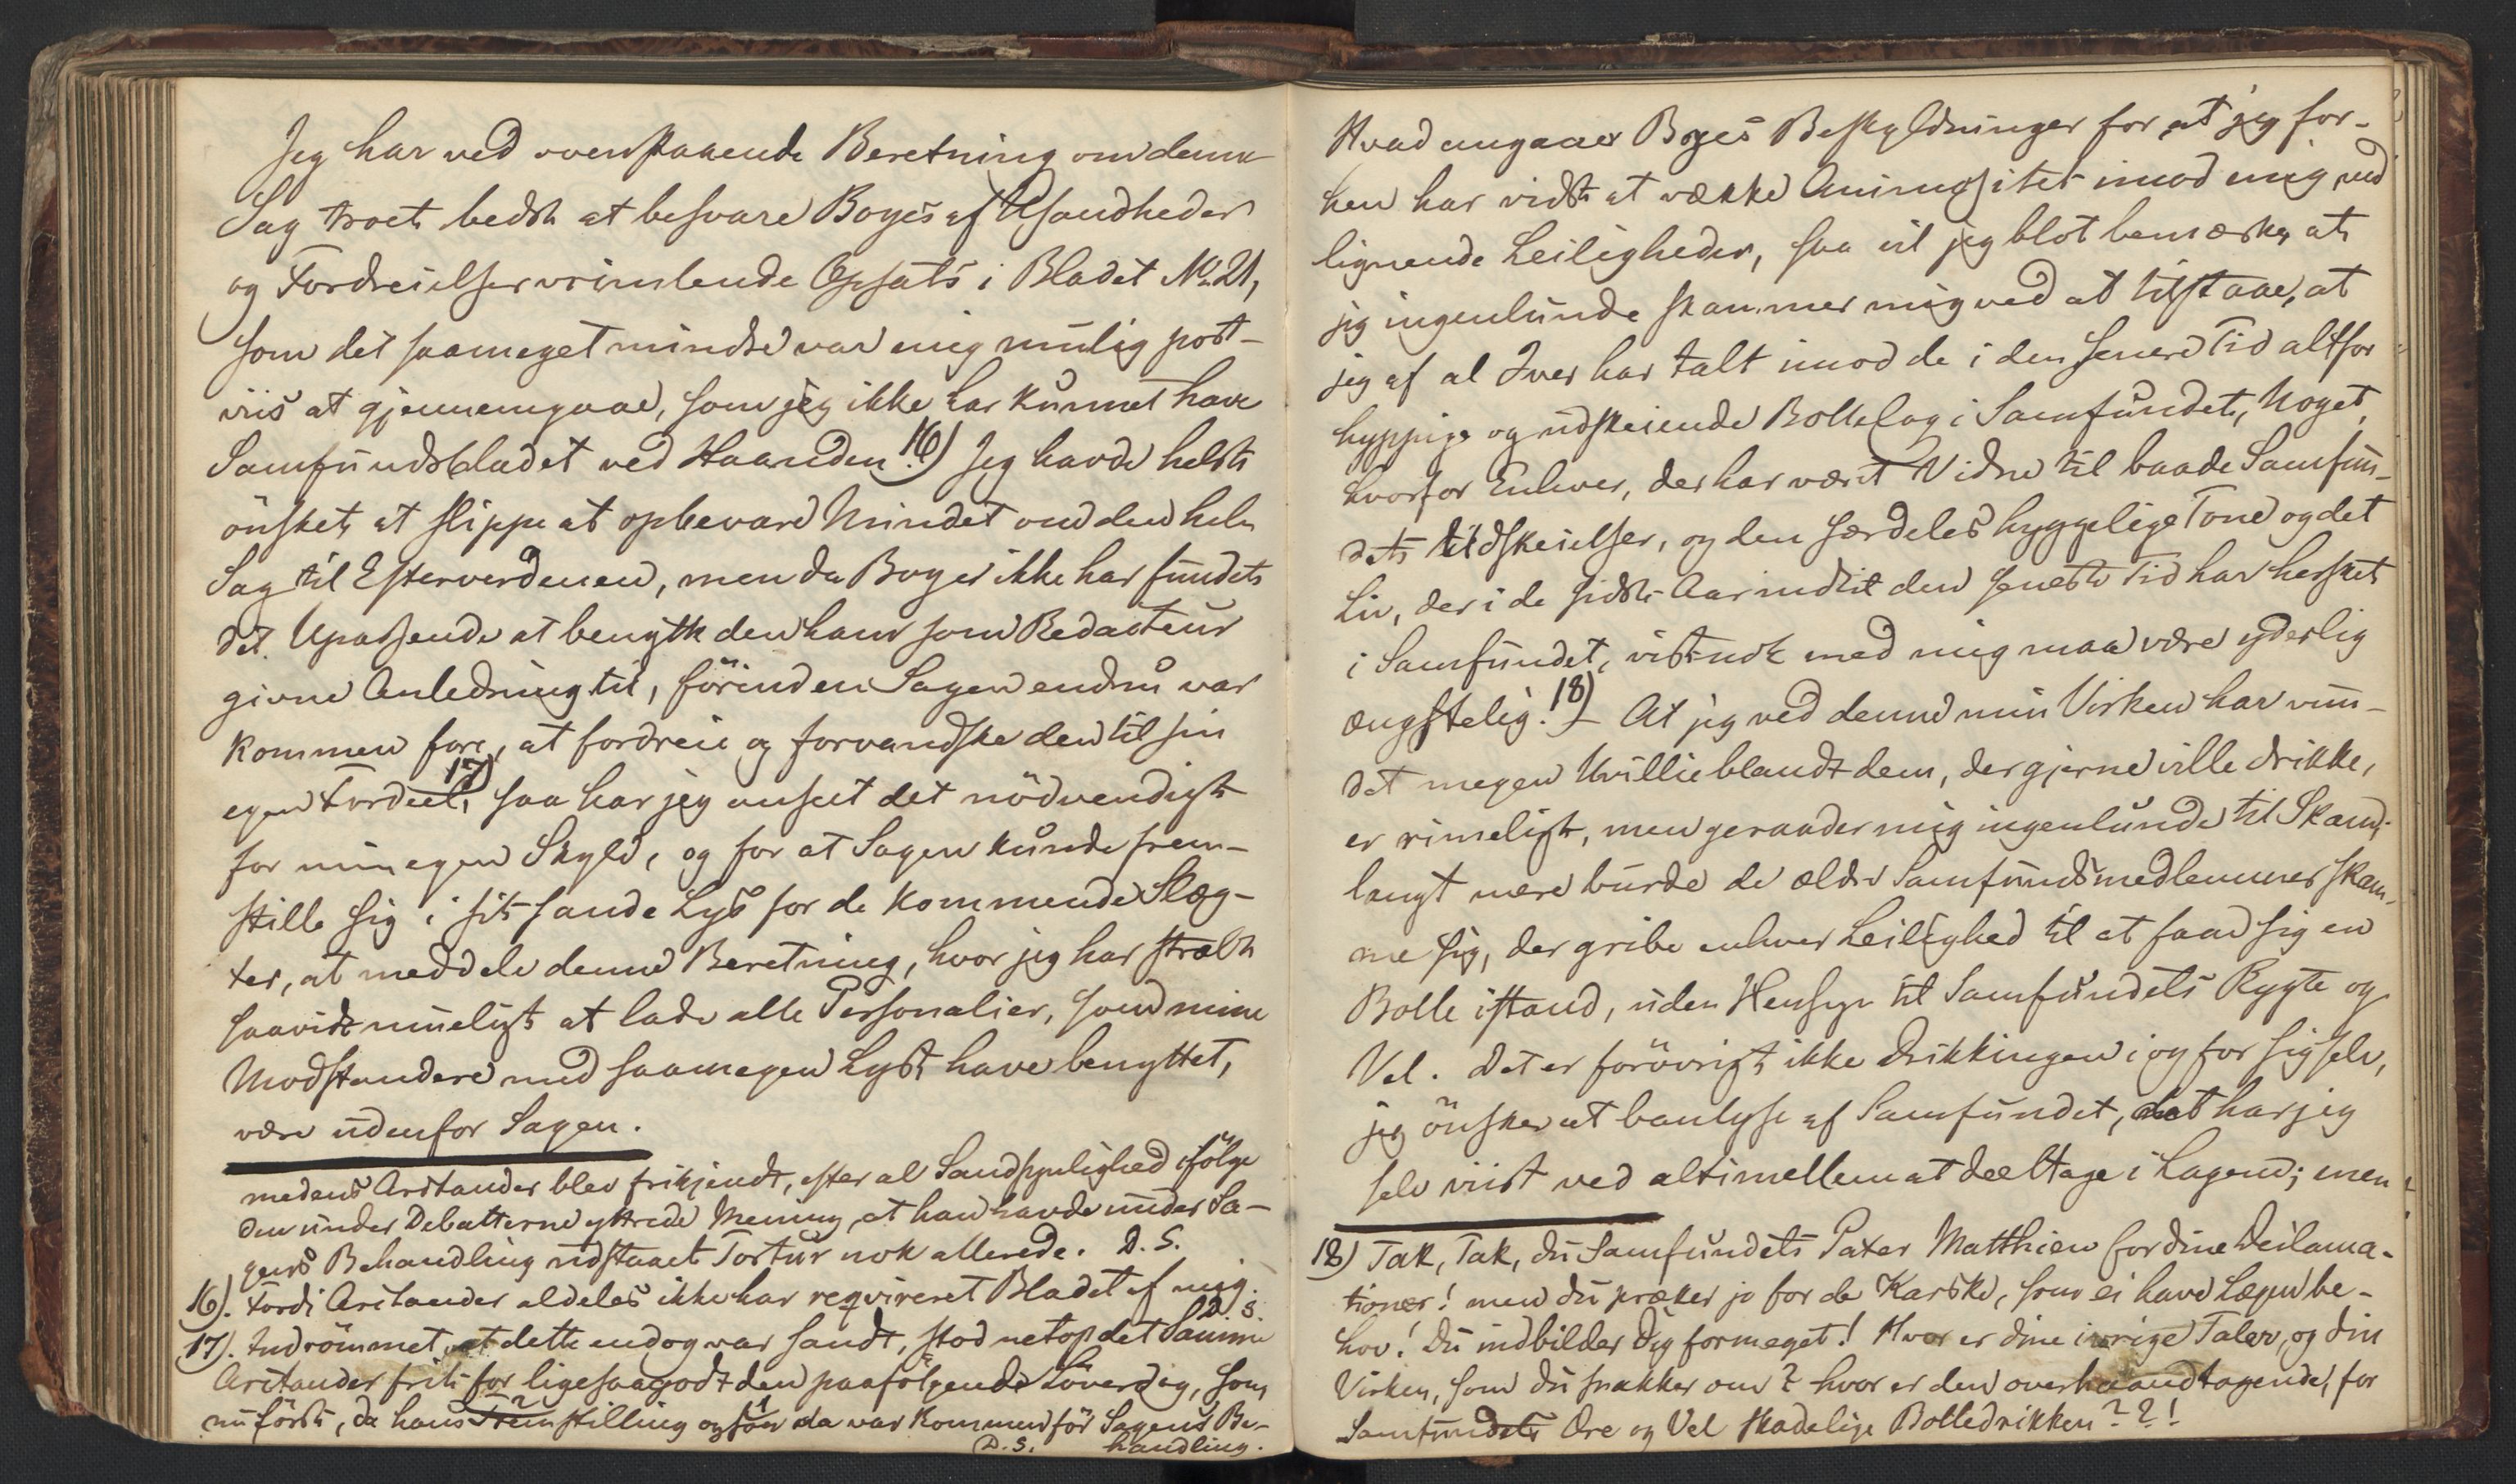 Jeg har ved ovenstaaende Beretning om denne
Sag troet bedst at besvare Boyes af Usandheder
og Fordreielser vrimlende Opsats i Bladet No. 21,
som det saameget mindre var mig mulig post-
viis at gjennemgaae, som jeg ikke har kunnet have
Samfundsbladet ved Haanden. 16) Jeg havde helst
önsket at slippe at opbevare Mindet om den hele
Sag til Efterverdenen, men da Boye ikke har fundet
det Upassende at benytte den ham som Redacteur
givne Anledning til, förinden Sagen endnu var
kommen fore, at fordreie og forvandske den til sin
egen Fordeel, 17) saa har jeg anseet det nödvendigt
for min egen Skyld, og for at Sagen kunde frem-
stille sig i sit sande Lys for de kommende Slæg-
ter, at meddele denne Beretning, hvor jeg har stræbt
saavidt mueligt at lade alle Personalier, som mine
Modstandere med saamegen Lyst have benyttet,
være udenfor Sagen.
medens Aristander blev frikjendt, efter al Sandsynlighed ifölge
den under Debatterne yttrede Mening, at han havde under Sa-
gens Behandling udstaaet Tortur nok allerede. D. S.
16). Fordi Aristander aldeles ikke har reqvireret Bladet af mig.
D. S.
17). Indrömmet at dette endog var sandt, stod netop det Samme
Aristander frit for ligesaagodt den paafölgende Löverdag, som
nu först, da hans Fremstilling ogsaa da var kommen för Sagens Be-
D. S. handling.
Hvad angaaer Boyes Beskyldninger for at jeg for-
hen har vidst at vække Animositet imod mig ved
lignende Leiligheder, saa vil jeg blot bemærke, at
jeg ingenlunde skammer mig ved at tilstaae, at
jeg af al Iver har talt imod de i den senere Tid altfor
hyppige og udskeiende Bollelag i Samfundet, Noget,
hvorfor Enhver, der har været Vidne til baade Samfun-
dets Udskeielser, og den særdeles hyggelige Tone og det
Liv, der i de sidste Aar indtil den seneste Tid har hersket
i Samfundet, vistnok med mig maa være yderlig
ængstelig. 18) – At jeg ved denne min Virken har vun-
det megen Uvillie blandt dem, der gjerne ville drikke,
er rimeligt, men geraader mig ingenlunde til Skam;
langt mere burde de ældre Samfundsmedlemmer skam-
me sig, der gribe enhver Leilighed til at faae sig en
Bolle istand, uden Hensyn til Samfundets Rygte og
Vel. Det er forövrigt ikke Drikkingen i og for sig selv,
jeg önsker at banlyse af Samfundet, det har jeg
selv viist ved altimellem at deeltage i Lagene; men
18) Tak, Tak, du Samfundets Pater Matthieu for dine Deklama-
tioner! men du præker jo for de Karske, som ei have Lægen be-
hov! Du indbilder dig formeget! Hvor er dine ivrige Taler, og din
Virken, som du snakker om? hvor er den overhaandtagende, for
Samfundets Ære og Vel skadelige Bolledrikken??!